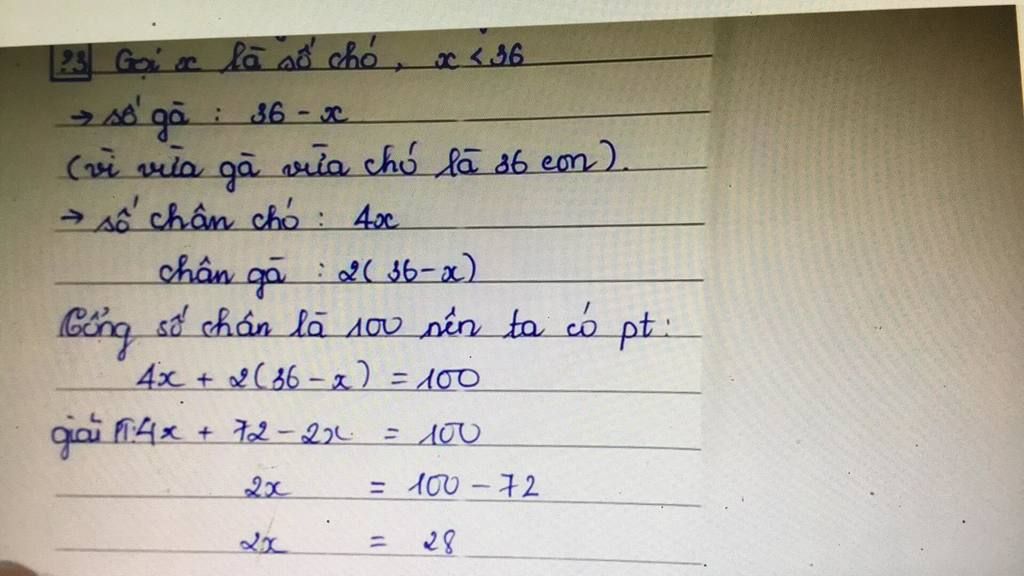 ?3 Gọi x là số chó, x < 36
→ số gà : 36 - x
(vì vừa gà vừa chó là 36 con).
→ số chân chó : 4x
chân gà : 2(36-x)
Tổng số chân là 100 nên ta có pt:
4x + 2(36-x) = 100
giải PT: 4x + 72 - 2x = 100
2x = 100 - 72
2x = 28